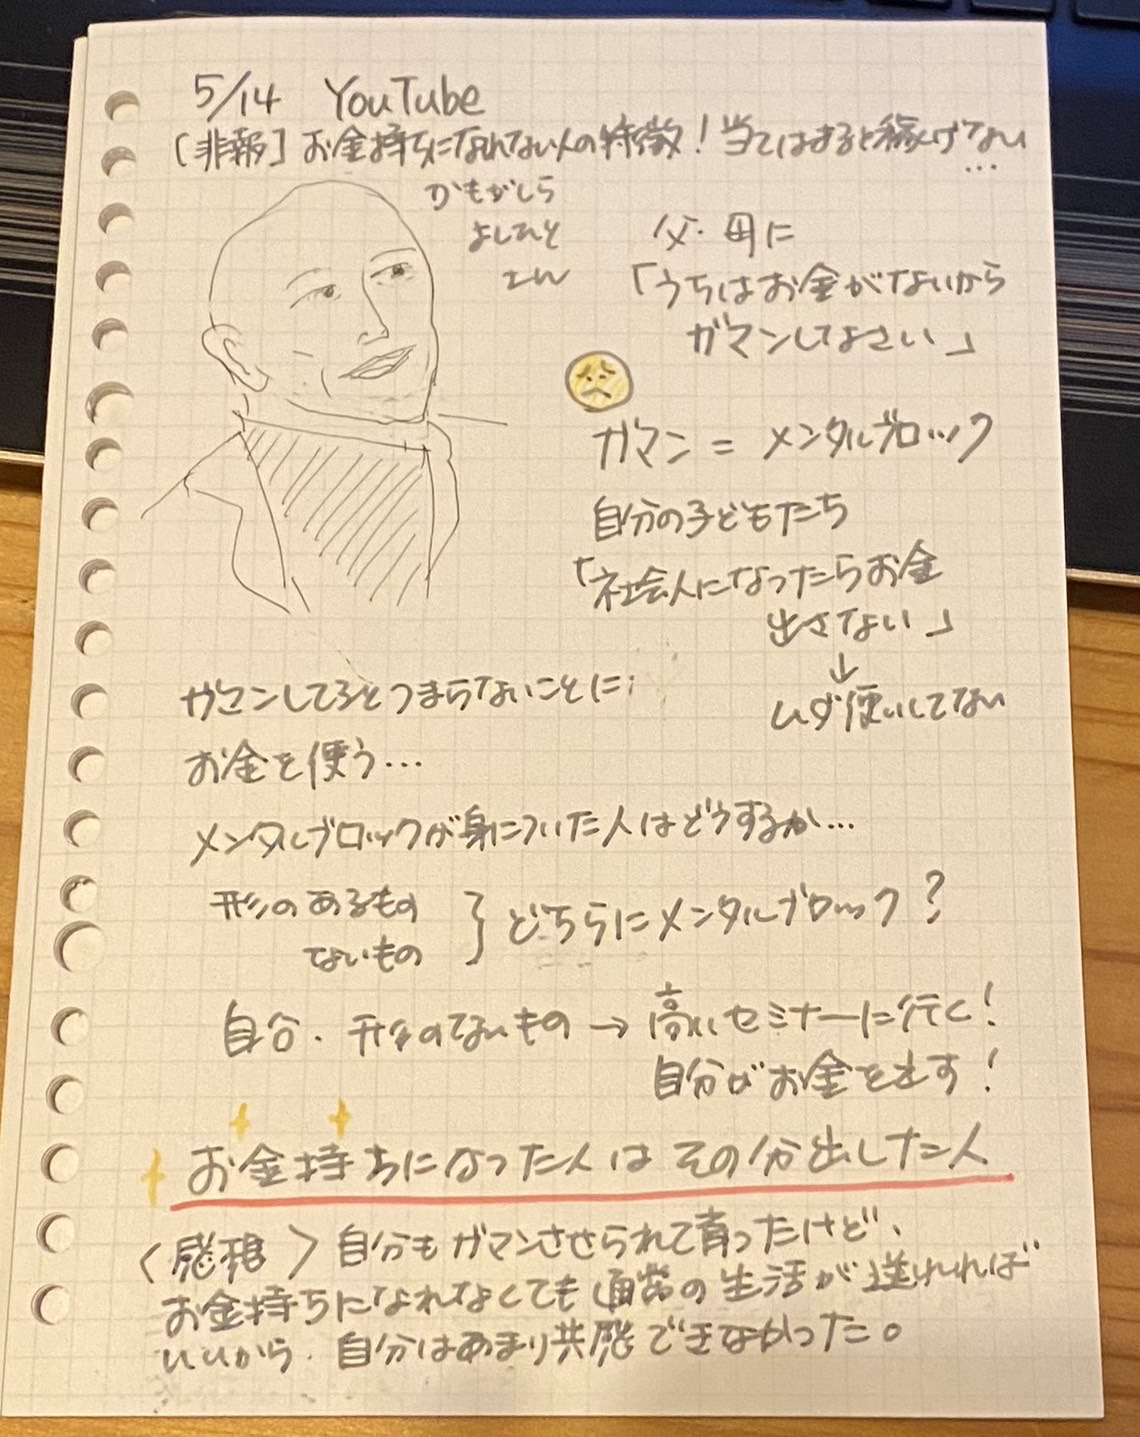 5/14 YouTube
[非報] お金持ちになれない人の特徴！当てはまると稼げない…
かもがしら
よしひと
さん
父・母に
「うちはお金がないから
ガマンしなさい」
ガマン = メンタルブロック
自分の子どもたち
「社会人になったらお金
出さない」
↓
ムダ使いしてない
ガマンしてるとつまらないことに
お金を使う…
メンタルブロックが身についた人はどうするか…
形のあるもの
ないもの
} どちらにメンタルブロック？
自分・形のないもの → 高いセミナーに行く！
自分がお金を出す！
お金持ちになった人はその分出した人
〈感想〉自分もガマンさせられて育ったけど、
お金持ちになれなくても通常の生活が送れれば
いいから、自分はあまり共感できなかった。